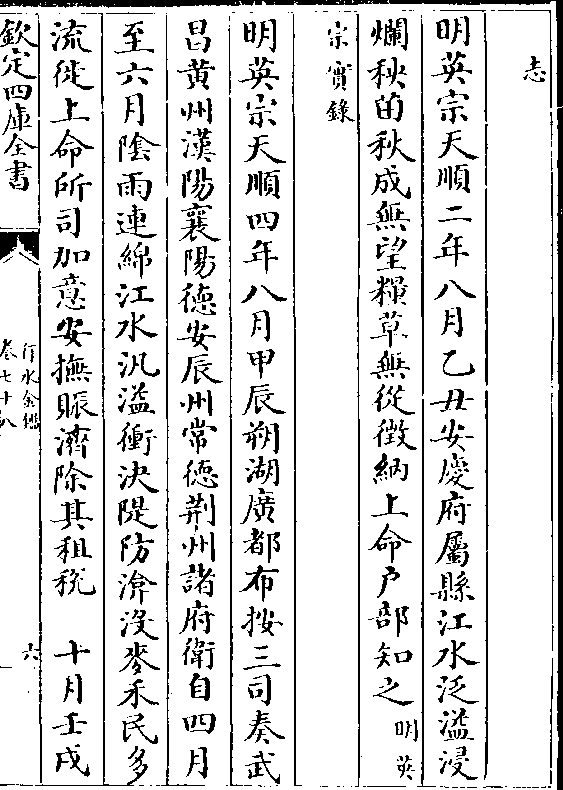 志
明英宗天順二年八月乙丑安慶府屬縣江水泛溢浸
爛秧苗秋成無望糧草無從徴納上命户部知之明英
宗實錄
明英宗天順四年八月甲辰朔湖廣都布按三司奏武
昌黄州漢陽襄陽德安辰州常德荆州諸府衛自四月
至六月陰雨連綿江水汎溢衝決隄防渰沒麥禾民多
流徙上命所司加意安撫賑濟除其租税 十月壬戌
欽定四庫全書
行水金鑑
卷七十八
六